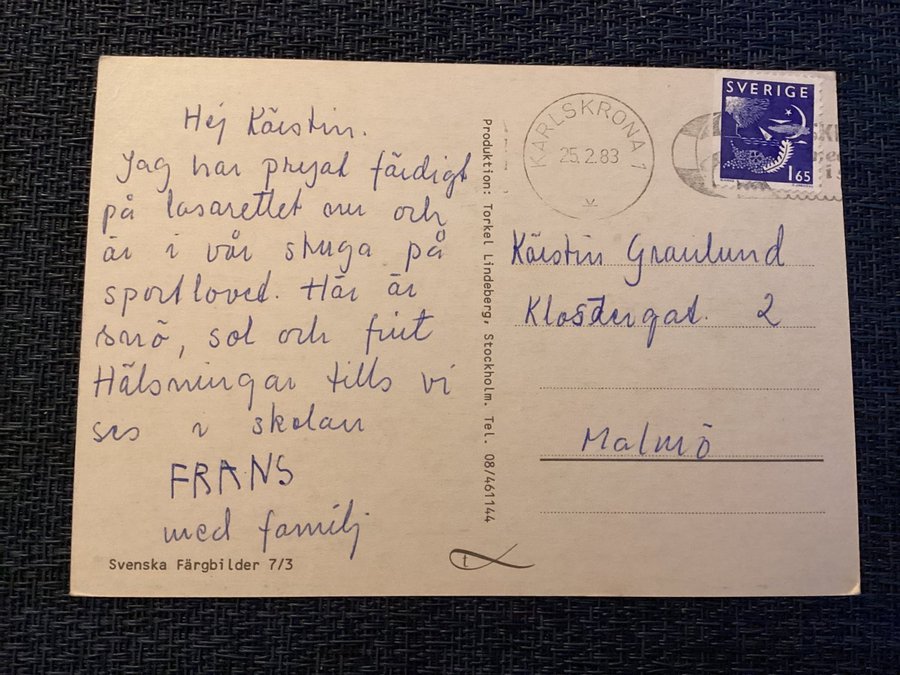 Hej Kärstin.
Jag har pryat färdigt
på lasarettet nu och
är i vår stuga på
sportlovet. Här är
snö, sol och fint
Hälsningar tills vi
ses i skolan
FRANS
med familj
Svenska Färgbilder 7/3
Produktion: Torkel Lindeberg, Stockholm. Tel. 08/461144
KARLSKRONA 1
25.2.83
SVERIGE
165
Kärstin Granlund
Klostergat. 2
Malmö